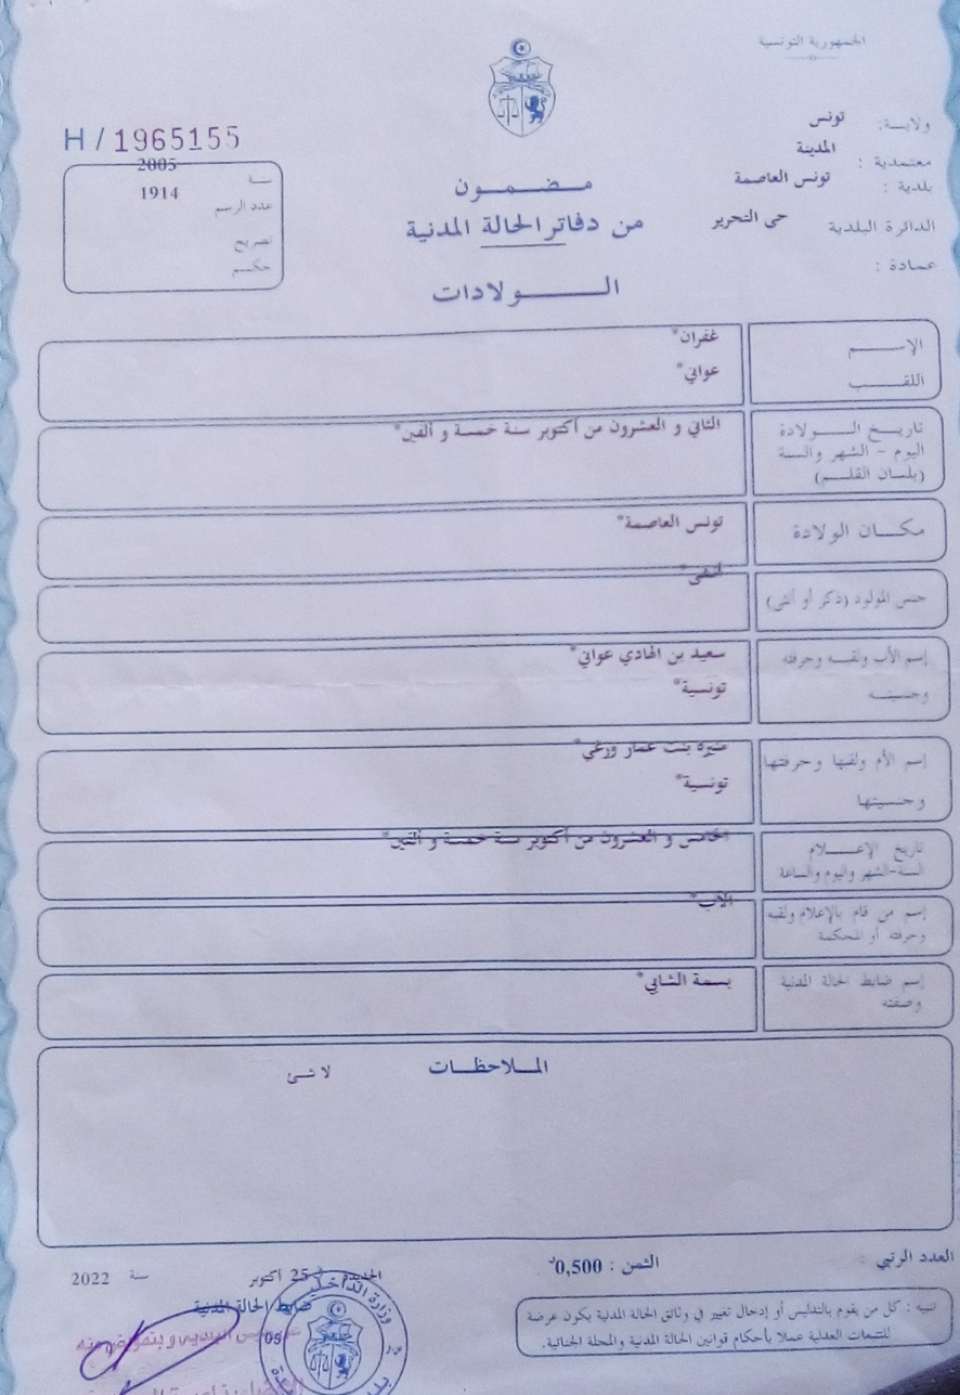 الجمهورية التونسية
ولايـــة: تونس
معتمدية : المدينة
بلدية : تونس العاصمة
الدائرة البلدية حى التحرير
عمادة :
H / 1965155
سنة 2005
عدد الرسم 1914
تصريح
حكم
مـضـمـون
من دفاتر الحالة المدنية
الـــولادات
الإســـم غفران*
اللقـــب عواني*
تاريـخ الـــولادة الثاني و العشرون من أكتوبر سنة خمسة و ألفين*
اليوم - الشهر والسنة
(بلسان القلـــم)
مكـــان الولادة تونس العاصمة*
جنس المولود (ذكر أو أنثى) أنثى*
إسم الأب ولقبـه وحرفته سعيد بن الهادي عواني*
وجنسيتـــه تونسية*
إسم الأم ولقبها وحرفتها منيرة بنت عمار ورغي*
وجنسيتها تونسية*
تاريخ الإعـــلام الخامس و العشرون من أكتوبر سنة خمسة و ألفين*
السنة-الشهر واليوم والساعة
إسم من قام بالإعلام ولقبه الأب*
وحرفته أو المحكمة
إسم ضابط الحالة المدنية بسمة الشابي*
وصفته
الملاحظـــات
لا شئ
العدد الرتبي :
الثمن : 0,500
25 أكتوبر سنة 2022
ضابط الحالة المدنية
وزارة الداخلية
09
تنبيه : كل من يقوم بالتدليس أو إدخال تغيير في وثائق الحالة المدنية يكون عرضة
للتتبعات العدلية عملا بأحكام قوانين الحالة المدنية والمجلة الجنائية.